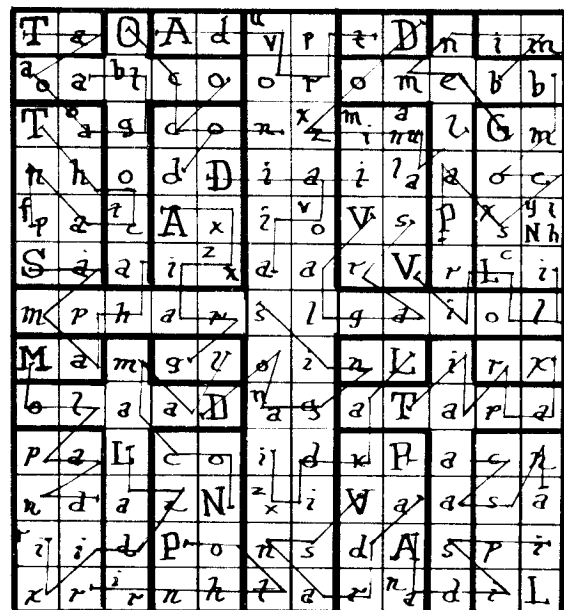 T a Q A d uv p t D n i m
ao a bl c o o r o m e b b
T oa g c o n xz mi anu l G m
n h o d D i a i la a o c
fp a tc A x i vo V s P xs yiNh
S a a i zx a a r V r Lc i
m p h a r s l g a i o l
M a m g l o i n L i r x
o l a a D na g a T a p a
p a L c o i d x P a c n
n d a z N zx i V a a s a
ri i d P o n s d A s p i
x r ir n h t a r na d i L